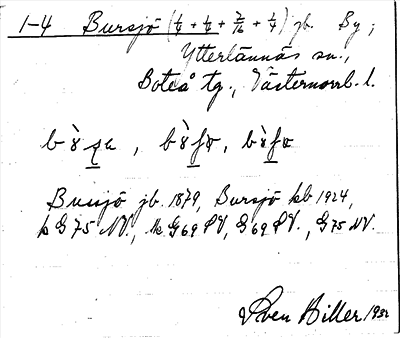 1-4 Bursjö (1/4 + 1/4 + 7/16 + 1/4) jb. By;
Ytterlännäs sn.,
Boteå tg., Västernorrl. l.
Bursjö jb. 1879, Bursjö kb 1924,
k G 75 NV., tk G 69 SV, G 69 SV., G 75 NV.
Sven Hiller 1932